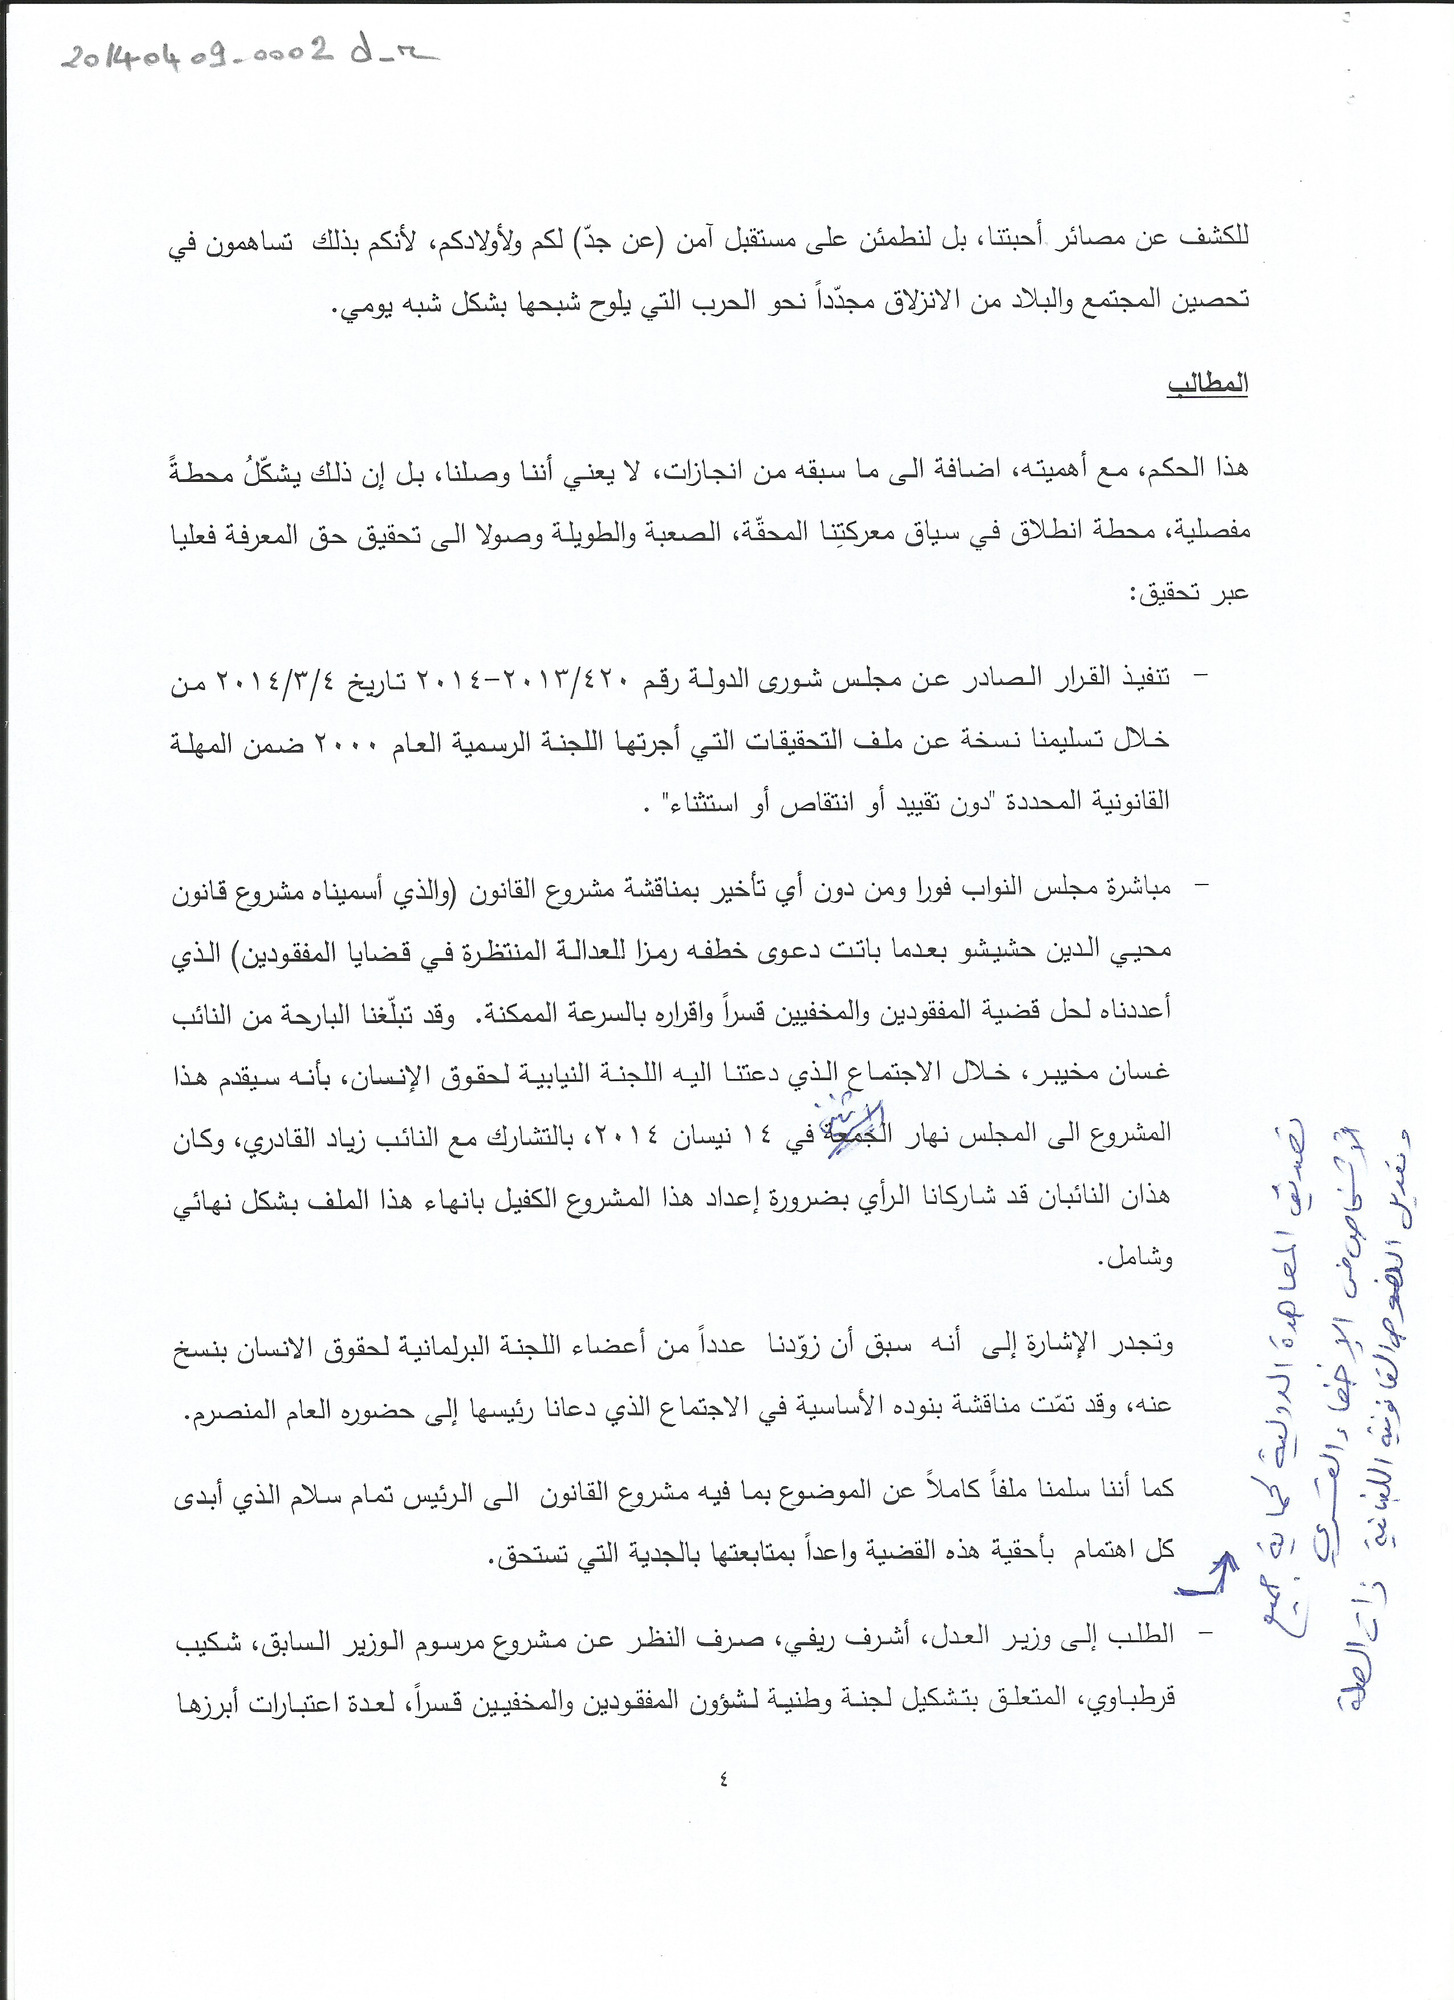 20140409_0002 d_r
للكشف عن مصائر أحبتنا، بل لنطمئن على مستقبل آمن (عن جدّ) لكم ولأولادكم، لأنكم بذلك تساهمون في
تحصين المجتمع والبلاد من الانزلاق مجدّداً نحو الحرب التي يلوح شبحها بشكل شبه يومي.
المطالب
هذا الحكم، مع أهميته، اضافة الى ما سبقه من انجازات، لا يعني أننا وصلنا، بل إن ذلك يشكّلُ محطةً
مفصلية، محطة انطلاق في سياق معركتِنا المحقّة، الصعبة والطويلة وصولا الى تحقيق حق المعرفة فعليا
عبر تحقيق:
– تنفيذ القرار الصادر عن مجلس شورى الدولة رقم ٢٠١٣/٤٢٠–٢٠١٤ تاريخ ٢٠١٤/٣/٤ من
خلال تسليمنا نسخة عن ملف التحقيقات التي أجرتها اللجنة الرسمية العام ٢٠٠٠ ضمن المهلة
القانونية المحددة "دون تقييد أو انتقاص أو استثناء" .
– مباشرة مجلس النواب فورا ومن دون أي تأخير بمناقشة مشروع القانون (والذي أسميناه مشروع قانون
محيي الدين حشيشو بعدما باتت دعوى خطفه رمزا للعدالة المنتظرة في قضايا المفقودين) الذي
أعددناه لحل قضية المفقودين والمخفيين قسراً واقراره بالسرعة الممكنة. وقد تبلّغنا البارحة من النائب
غسان مخيبر، خلال الاجتماع الذي دعتنا اليه اللجنة النيابية لحقوق الإنسان، بأنه سيقدم هذا
الاثنين
المشروع الى المجلس نهار الجمعة في ١٤ نيسان ٢٠١٤، بالتشارك مع النائب زياد القادري، وكان
هذان النائبان قد شاركانا الرأي بضرورة إعداد هذا المشروع الكفيل بانهاء هذا الملف بشكل نهائي
وشامل.
وتجدر الإشارة إلى أنه سبق أن زوّدنا عدداً من أعضاء اللجنة البرلمانية لحقوق الانسان بنسخ
عنه، وقد تمّت مناقشة بنوده الأساسية في الاجتماع الذي دعانا رئيسها إلى حضوره العام المنصرم.
كما أننا سلمنا ملفاً كاملاً عن الموضوع بما فيه مشروع القانون الى الرئيس تمام سلام الذي أبدى
كل اهتمام بأحقية هذه القضية واعداً بمتابعتها بالجدية التي تستحق.
– الطلب إلى وزير العدل، أشرف ريفي، صرف النظر عن مشروع مرسوم الوزير السابق، شكيب
قرطباوي، المتعلق بتشكيل لجنة وطنية لشؤون المفقودين والمخفيين قسراً، لعدة اعتبارات أبرزها
٤
تصديق المعاهدة الدولية لحماية جميع
الأشخاص من الإخفاء القسري
وتعديل النصوص القانونية اللبنانية ذات الصلة